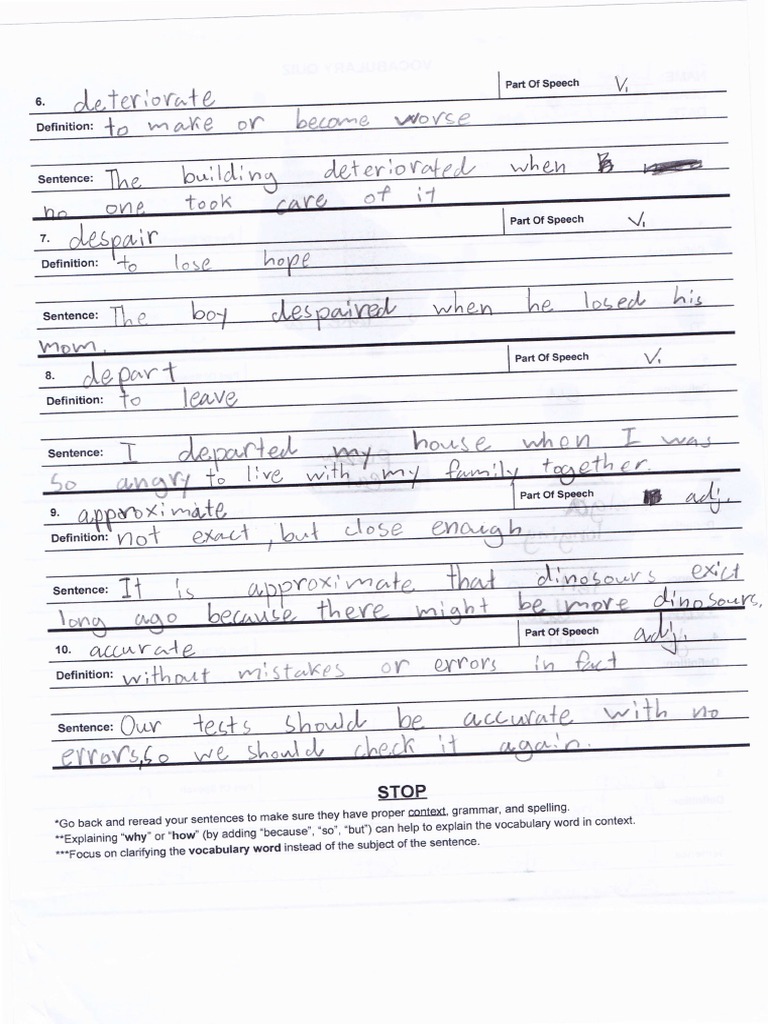 6. deteriorate Part Of Speech v.
Definition: to make or become worse
Sentence: The building deteriorated when
no one took care of it
7. despair Part Of Speech v.
Definition: to lose hope
Sentence: The boy despaired when he losed his
mom.
8. depart Part Of Speech v.
Definition: to leave
Sentence: I departed my house when I was
so angry to live with my family together.
9. approximate Part Of Speech adj.
Definition: not exact, but close enough
Sentence: It is approximate that dinosours exict
long ago because there might be more dinosours.
10. accurate Part Of Speech adj.
Definition: without mistakes or errors in fact
Sentence: Our tests should be accurate with no
errors, so we should check it again.
STOP
*Go back and reread your sentences to make sure they have proper context, grammar, and spelling.
**Explaining "why" or "how" (by adding "because", "so", "but") can help to explain the vocabulary word in context.
***Focus on clarifying the vocabulary word instead of the subject of the sentence.